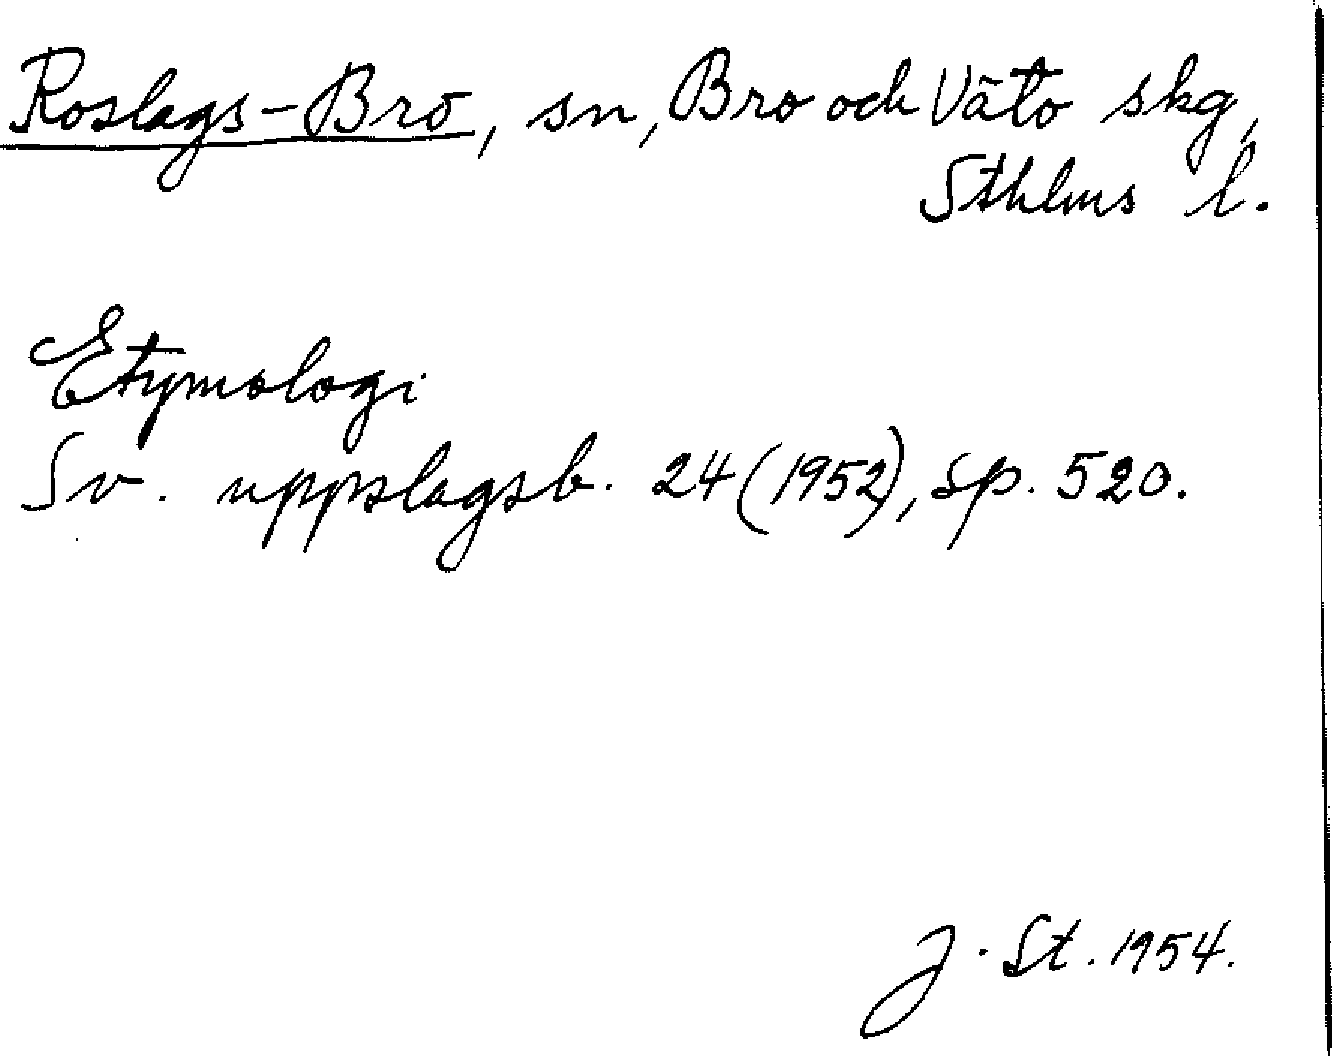 Roslags-Bro, sn, Bro och Vätö skg,
Sthlms l.
Etymologi
Sv. uppslagsb. 24 (1952), sp. 520.
J. St. 1954.